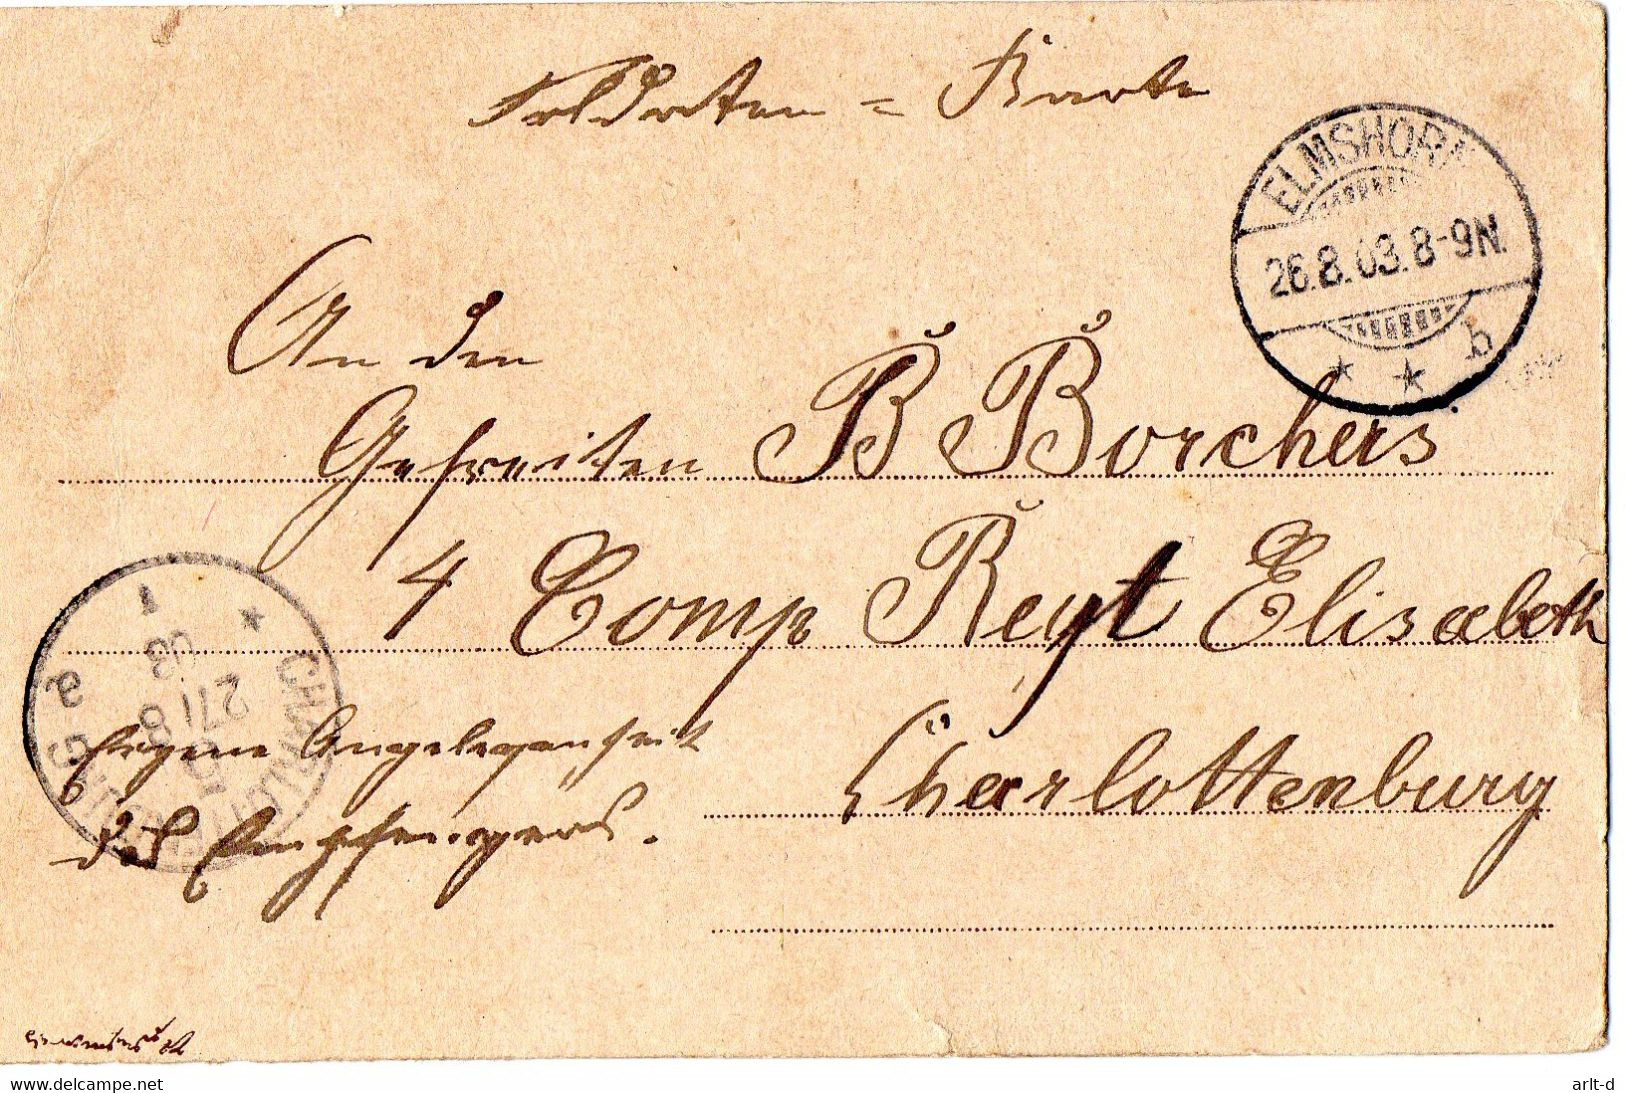 Soldaten = Karte
ELMSHORN
26.8.03.8-9N.
* * b
An den
Gefreiten B Borchers
4 Comp Regt Elisabeth
Charlottenburg
Eigene Angelegenheit
des Empfängers.
CHARLOTTENBURG
27/8
03
1
a
www.delcampe.net
arlt-d